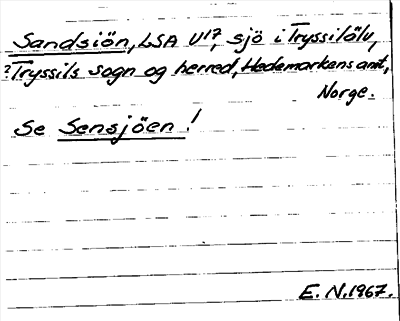 Sandsiön, LSA U17, sjö i Tryssilälv,
?Tryssils sogn og herred, Hedemarkens amt,
Norge.
Se Sensjöen!
E. N. 1967.